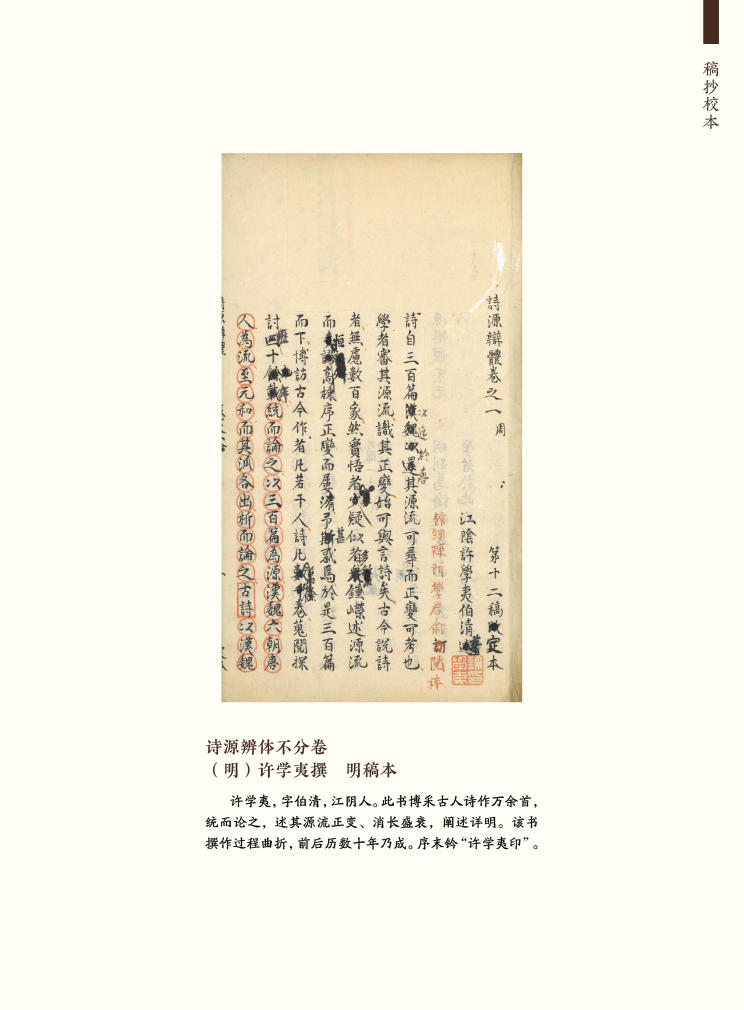 稿抄校本
詩源辯體卷之一 周
第十二稿定本
江陰許學夷伯清
館甥陳所學君俞訂閱梓
詩自三百篇以迄於唐其源流可尋而正變可考也
學者審其源流識其正變始可與言詩矣古今說詩
者無慮數百家然實悟者少疑似者衆鍾嶸述源流
而恒謬高棅序正變而屢淆予甚惑焉於是三百篇
而下博訪古今作者凡若干人詩凡數卷蒐閱探
討四十年統而論之以三百篇為源漢魏六朝唐
人為流至元和而其派各出析而論之古詩以漢魏
诗源辨体不分卷
（明）许学夷撰　明稿本
许学夷，字伯清，江阴人。此书博采古人诗作万余首，
统而论之，述其源流正变、消长盛衰，阐述详明。该书
撰作过程曲折，前后历数十年乃成。序末钤“许学夷印”。